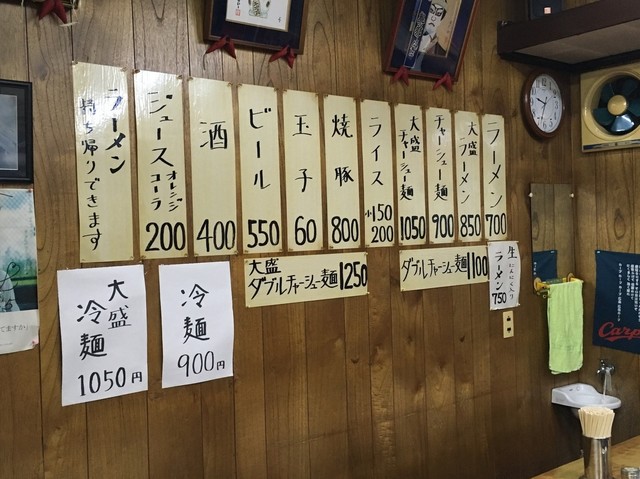 ラーメン
700
大盛
ラーメン
850
チャーシュー麺
900
大盛
チャーシュー麺
1050
ライス
小150
200
焼豚
800
玉子
60
ビール
550
酒
400
ジュース
オレンジ
コーラ
200
ラーメン
持ち帰りできます
生
にんにく入り
ラーメン
750
ダブルチャーシュー麺1100
大盛
ダブルチャーシュー麺1250
冷麺
900円
大盛
冷麺
1050円
Carp